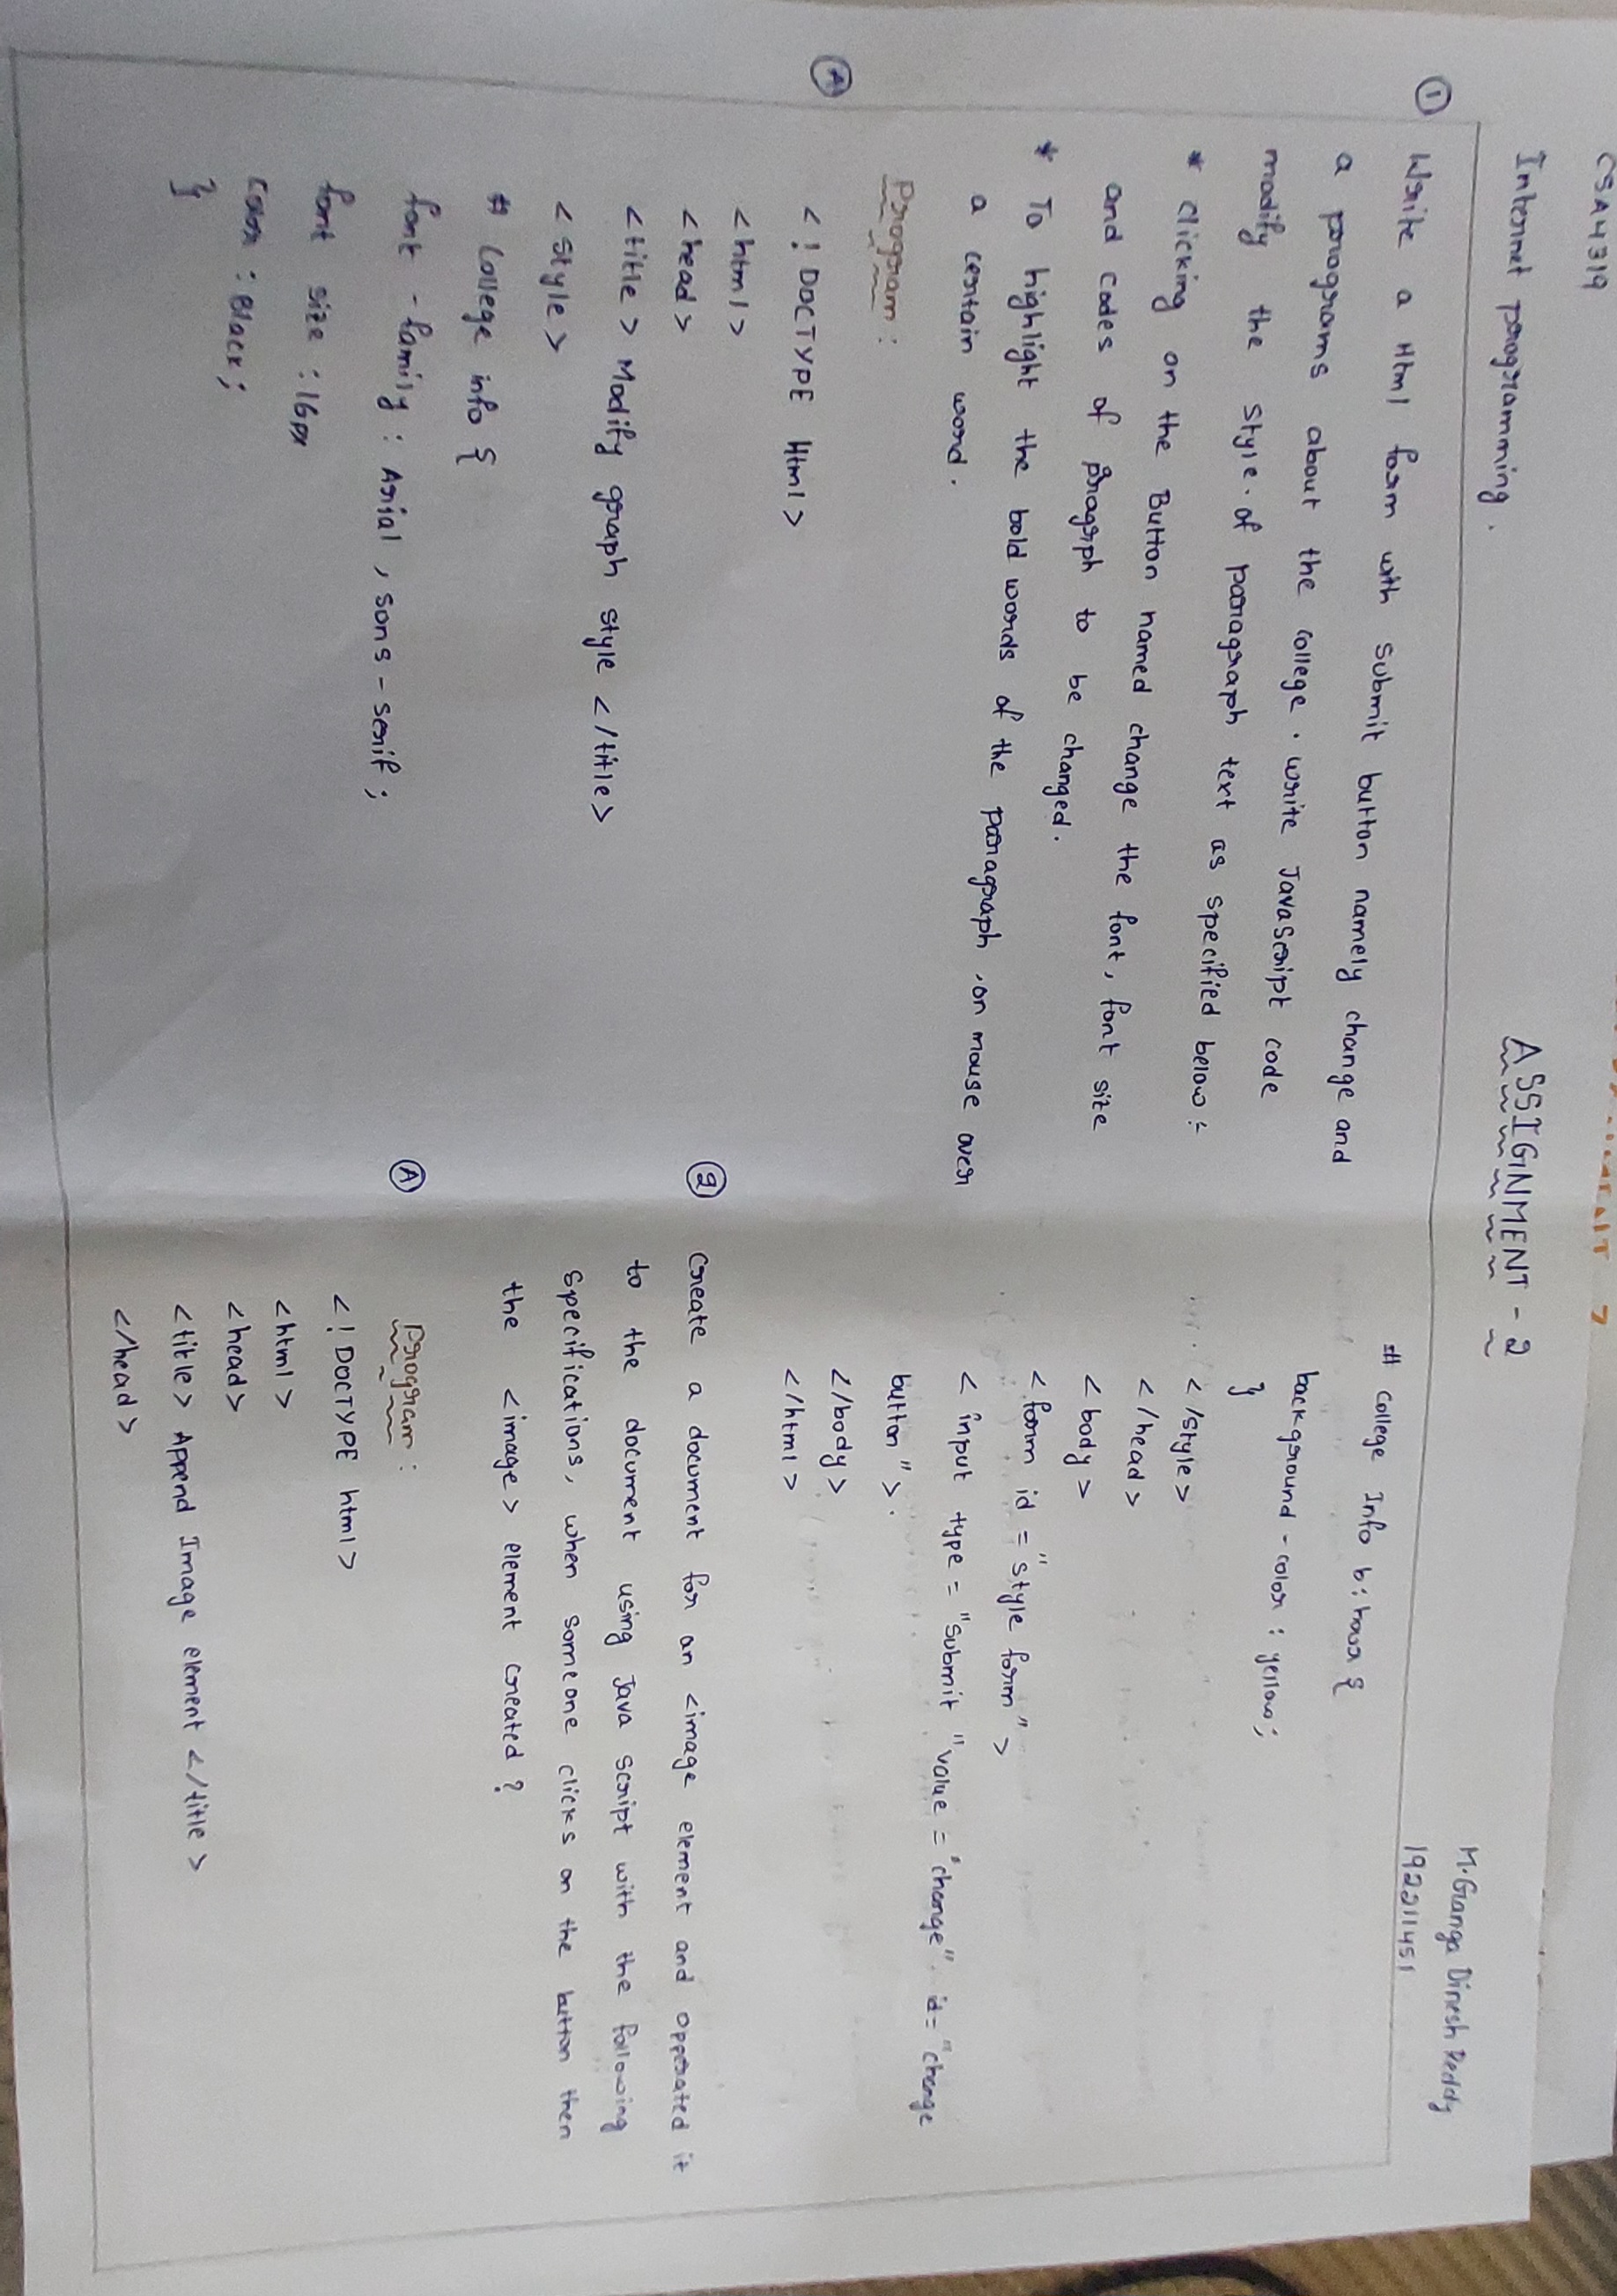 CSA4319
Internet programming.
ASSIGINMENT - 2
M. Ganga Dinesh Reddy
192211451
① Write a Html form with submit button namely change and
a programs about the college. write JavaScript code
modify the style. of paragraph text as specified below :-
* clicking on the Button named change the font, font size
and codes of pragrph to be changed.
* To highlight the bold words of the paragraph, on mouse over
a certain word.
Ⓐ Program :
< ! DOCTYPE Html >
< html >
< head >
< title > Modify graph style < / title >
< style >
# college info {
font - family : Arial , sons - serif ;
font size : 16px
color : Black ;
}
# college Info b : hover {
background - color : yellow ;
}
< / style >
< / head >
< body >
< form id = "style form" >
< input type = "submit" value = 'change". id = "change
button" > .
< / body >
< / html >
② Create a document for an <image element and opperated it
to the document using Java script with the following
specifications, when someone clicks on the button then
the <image> element created ?
Ⓐ Program :
< ! DOCTYPE html >
< html >
< head >
< title > Append Image element < / title >
< / head >